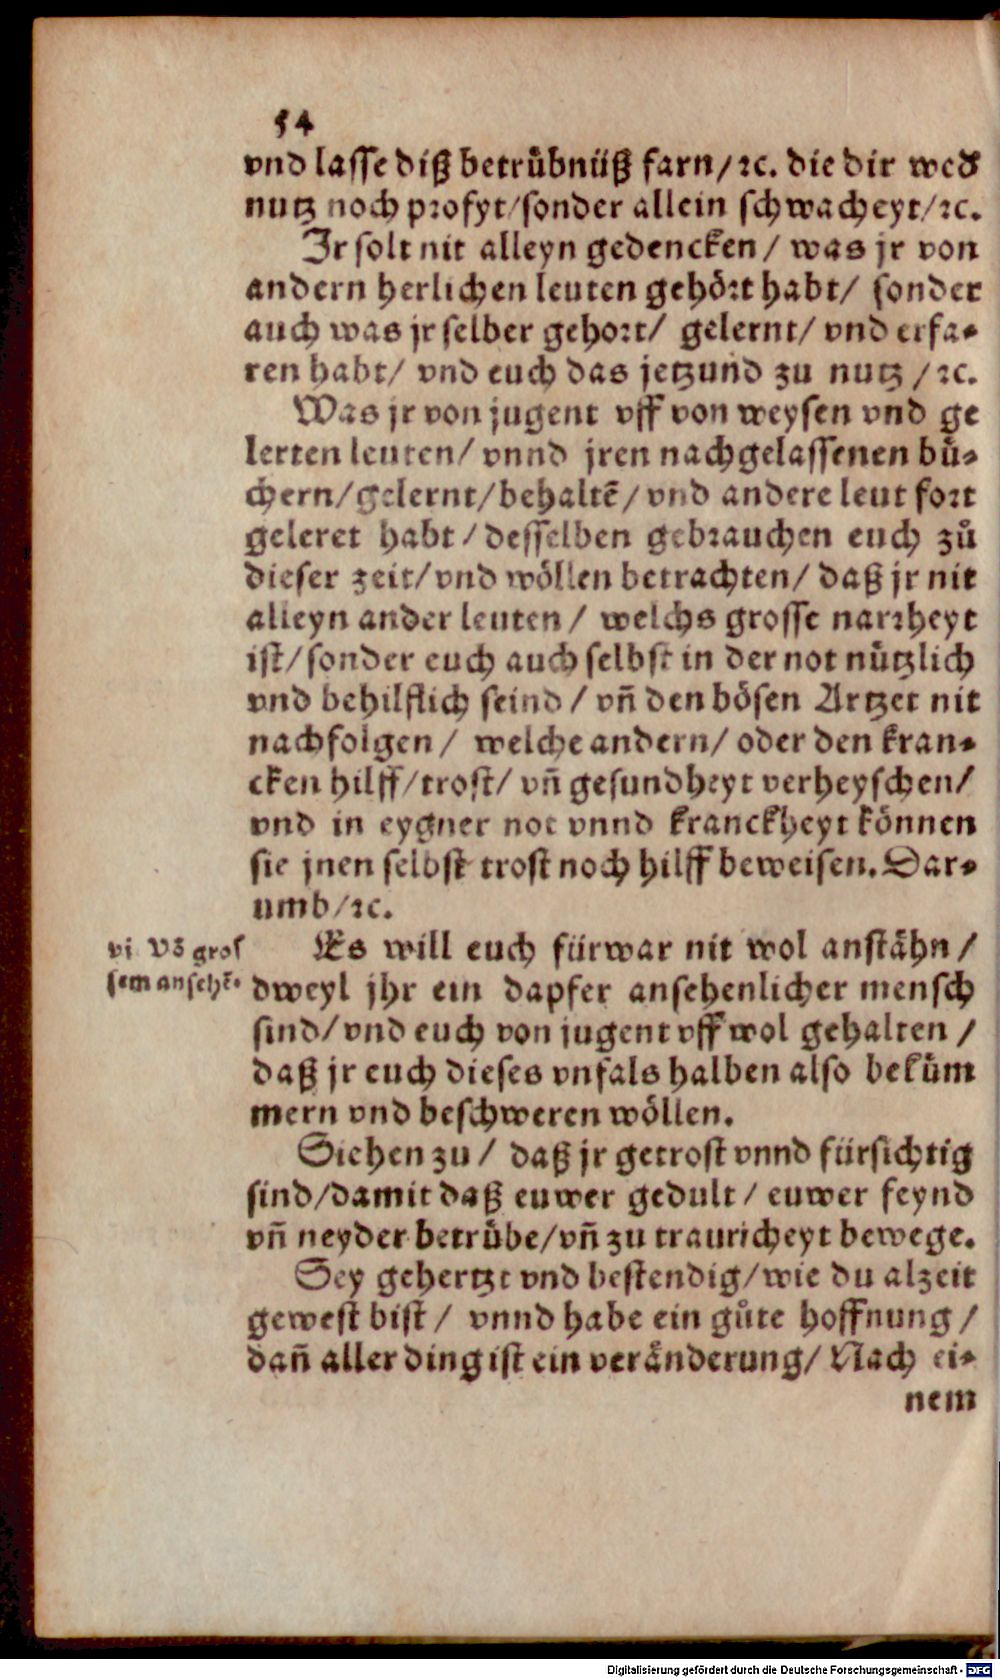 54
vnd lasse diß betruͤbnuͤß farn/ꝛc. die dir wed̕
nutz noch profyt/sonder allein schwacheyt/ꝛc.
Jr solt nit alleyn gedencken/ was jr von
andern herlichen leuten gehoͤrt habt/ sonder
auch was jr selber gehort/ gelernt/ vnd erfa⸗
ren habt/ vnd euch das jetzund zu nutz /ꝛc.
Was jr von jugent vff von weysen vnd ge
lerten leuten/ vnnd jren nachgelassenen buͤ⸗
chern/gelernt/behaltẽ/ vnd andere leut fort
geleret habt/ desselben gebrauchen euch zuͦ
dieser zeit/vnd woͤllen betrachten/ daß jr nit
alleyn ander leuten/ welchs grosse narrheyt
ist/sonder euch auch selbst in der not nuͤtzlich
vnd behilflich seind/ vñ den boͤsen Artzet nit
nachfolgen/ welche andern/ oder den kran⸗
cken hilff/trost/ vñ gesundheyt verheyschen/
vnd in eygner not vnnd kranckheyt koͤnnen
sie jnen selbst trost noch hilff beweisen. Dar⸗
umb/ꝛc.
vj. Võ gros
sem ansehẽ.
Es will euch fuͤrwar nit wol anstaͤhn/
dweyl jhr ein dapfer ansehenlicher mensch
sind/vnd euch von jugent vff wol gehalten/
daß jr euch dieses vnfals halben also bekuͤm
mern vnd beschweren woͤllen.
Siehen zu/ daß jr getrost vnnd fuͤrsichtig
sind/damit daß euwer gedult/ euwer feynd
vñ neyder betruͤbe/vñ zu trauricheyt bewege.
Sey gehertzt vnd bestendig/wie du alzeit
gewest bist/ vnnd habe ein guͦte hoffnung/
dañ aller ding ist ein veraͤnderung/ Nach ei⸗
nem
Digitalisierung gefördert durch die Deutsche Forschungsgemeinschaft - DFG